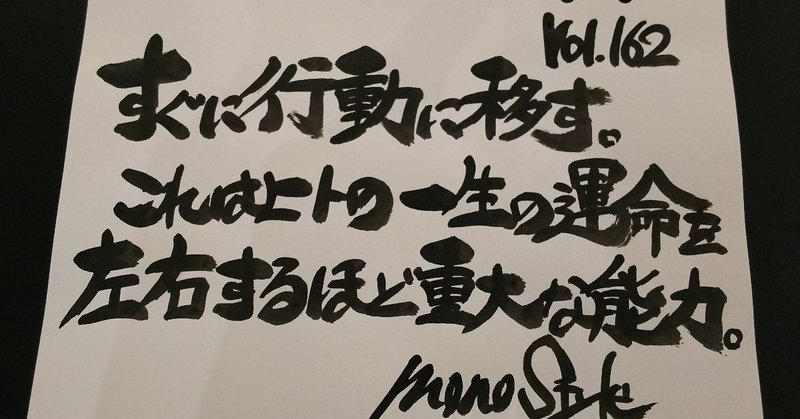 Vol.162
すぐに行動に移す。
これはヒトの一生の運命を
左右するほど重大な能力。